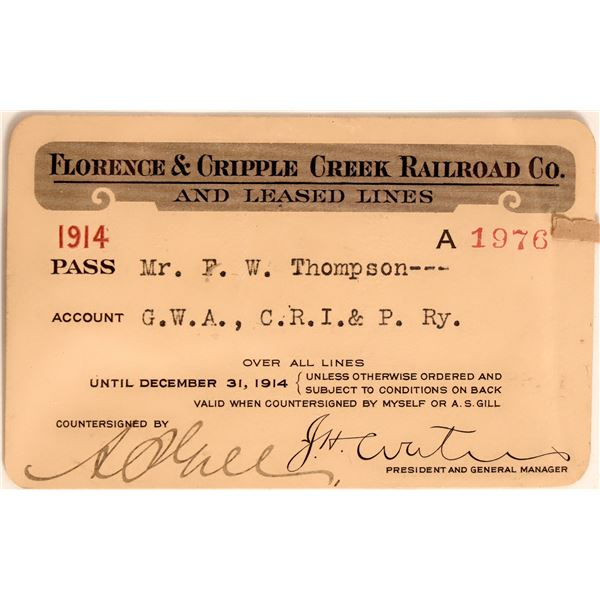 FLORENCE & CRIPPLE CREEK RAILROAD CO.
AND LEASED LINES
1914 A 1976
PASS Mr. F. W. Thompson---
ACCOUNT G.W.A., C.R.I.& P. Ry.
OVER ALL LINES
UNTIL DECEMBER 31, 1914 { UNLESS OTHERWISE ORDERED AND
SUBJECT TO CONDITIONS ON BACK
VALID WHEN COUNTERSIGNED BY MYSELF OR A.S. GILL
COUNTERSIGNED BY
A S Gill J.H. Waters
PRESIDENT AND GENERAL MANAGER